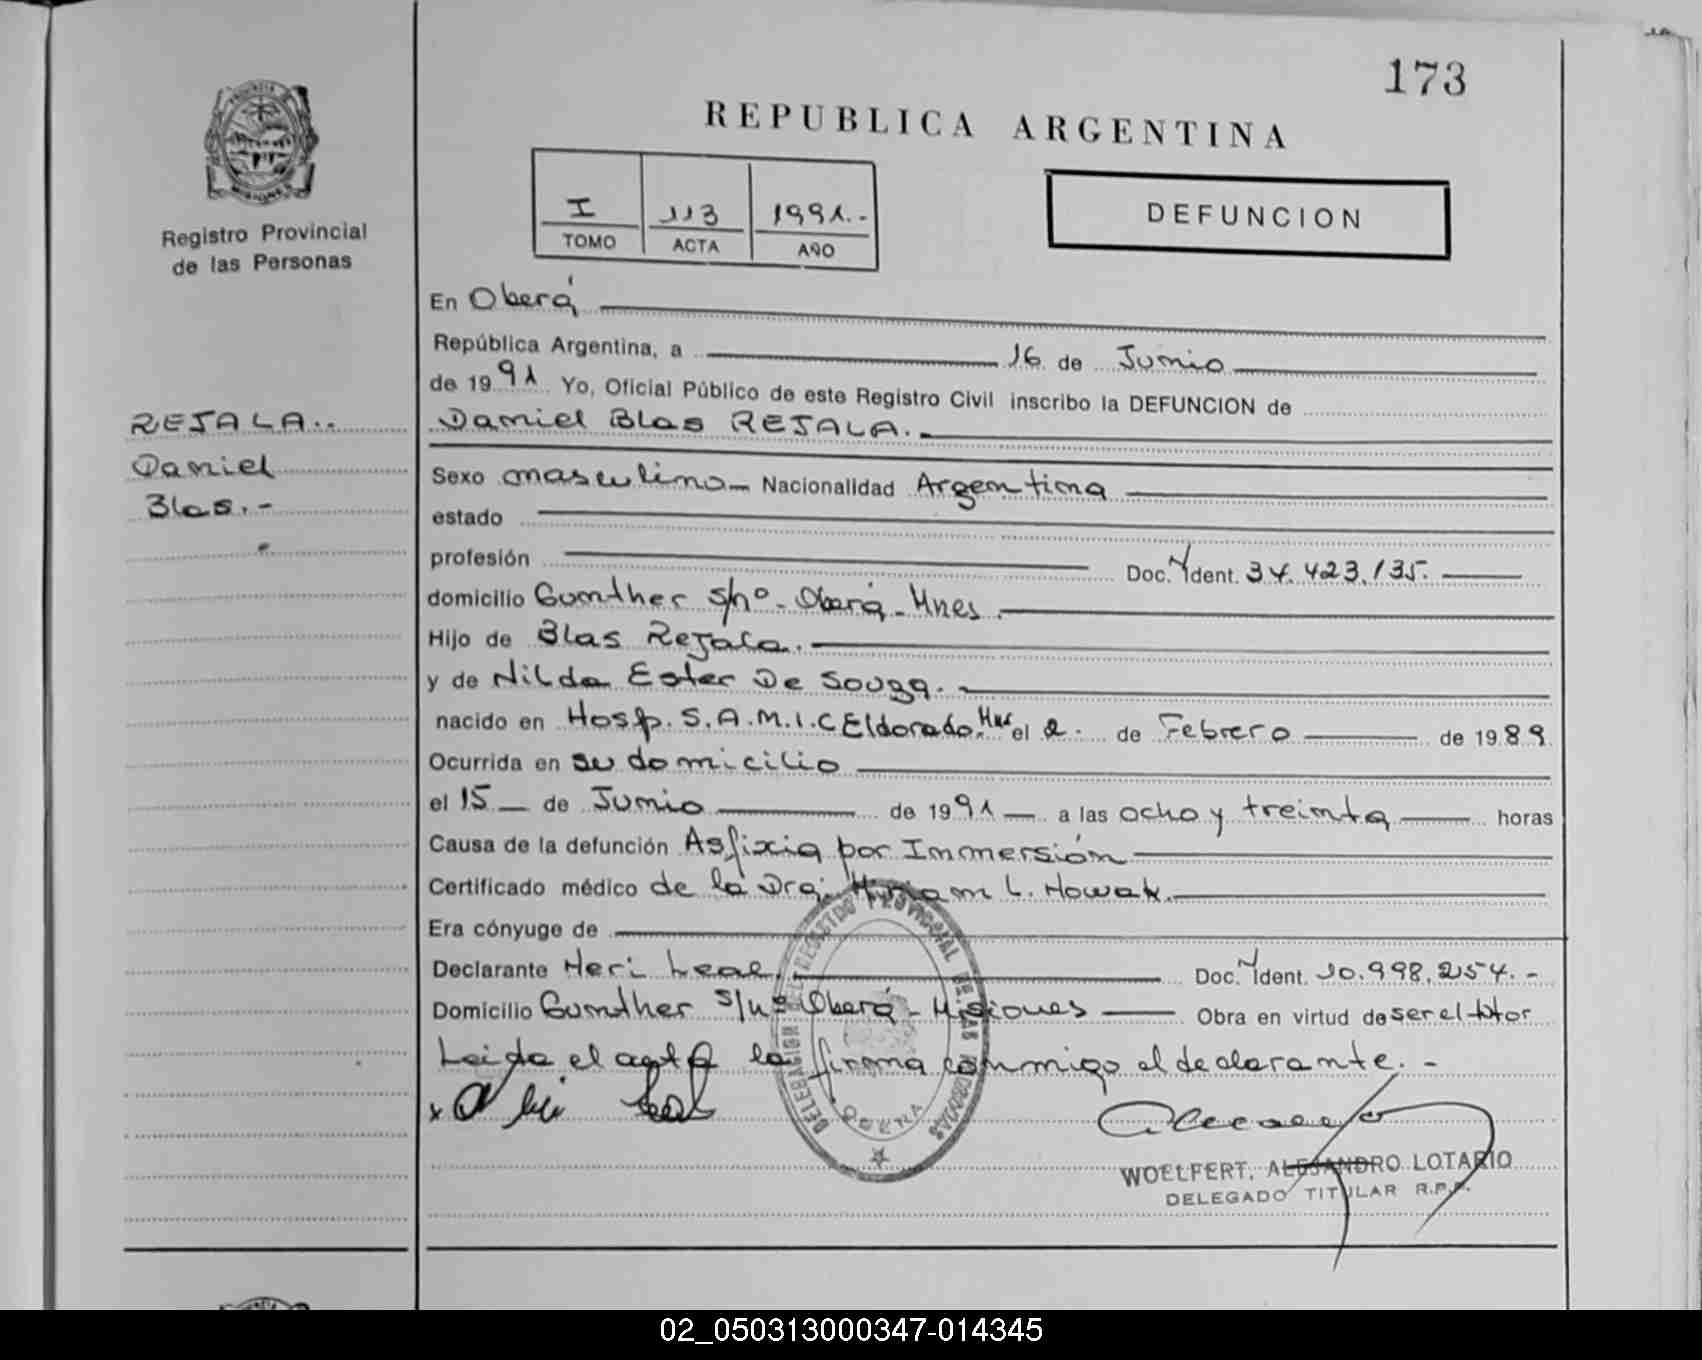 173
REPUBLICA ARGENTINA
PROVINCIA DE
MISIONES
Registro Provincial
de las Personas
I 113 1991.-
TOMO ACTA AÑO
DEFUNCION
En Oberá
República Argentina, a 16 de Junio
de 1991 Yo, Oficial Público de este Registro Civil inscribo la DEFUNCION de
REJALA..
Daniel
Blas.-
Daniel Blas REJALA.
Sexo masculino Nacionalidad Argentina
estado
profesión Doc. Ident. 34.423.135.
domicilio Gunther s/nº - Oberá - Mnes.
Hijo de Blas Rejala.
y de Nilda Ester De Souza.
nacido en Hosp. S.A.M.I.C Eldorado. Mnes el 2. de Febrero de 1989
Ocurrida en su domicilio
el 15 de Junio de 1991 a las ocho y treinta horas
Causa de la defunción Asfixia por Inmersión
Certificado médico de la Dra. Myriam L. Nowak.
Era cónyuge de
Declarante Neri Leal. Doc. Ident. 10.998.254.-
Domicilio Gunther s/nº Oberá - Misiones Obra en virtud de ser el tutor
Leida el acta la firma conmigo el declarante.-
x Leal
DELEGACION DEL REGISTRO PROVINCIAL DE LAS PERSONAS
OBERA
WOELFERT, ALEJANDRO LOTARIO
DELEGADO TITULAR R.P.P.
02_050313000347-014345